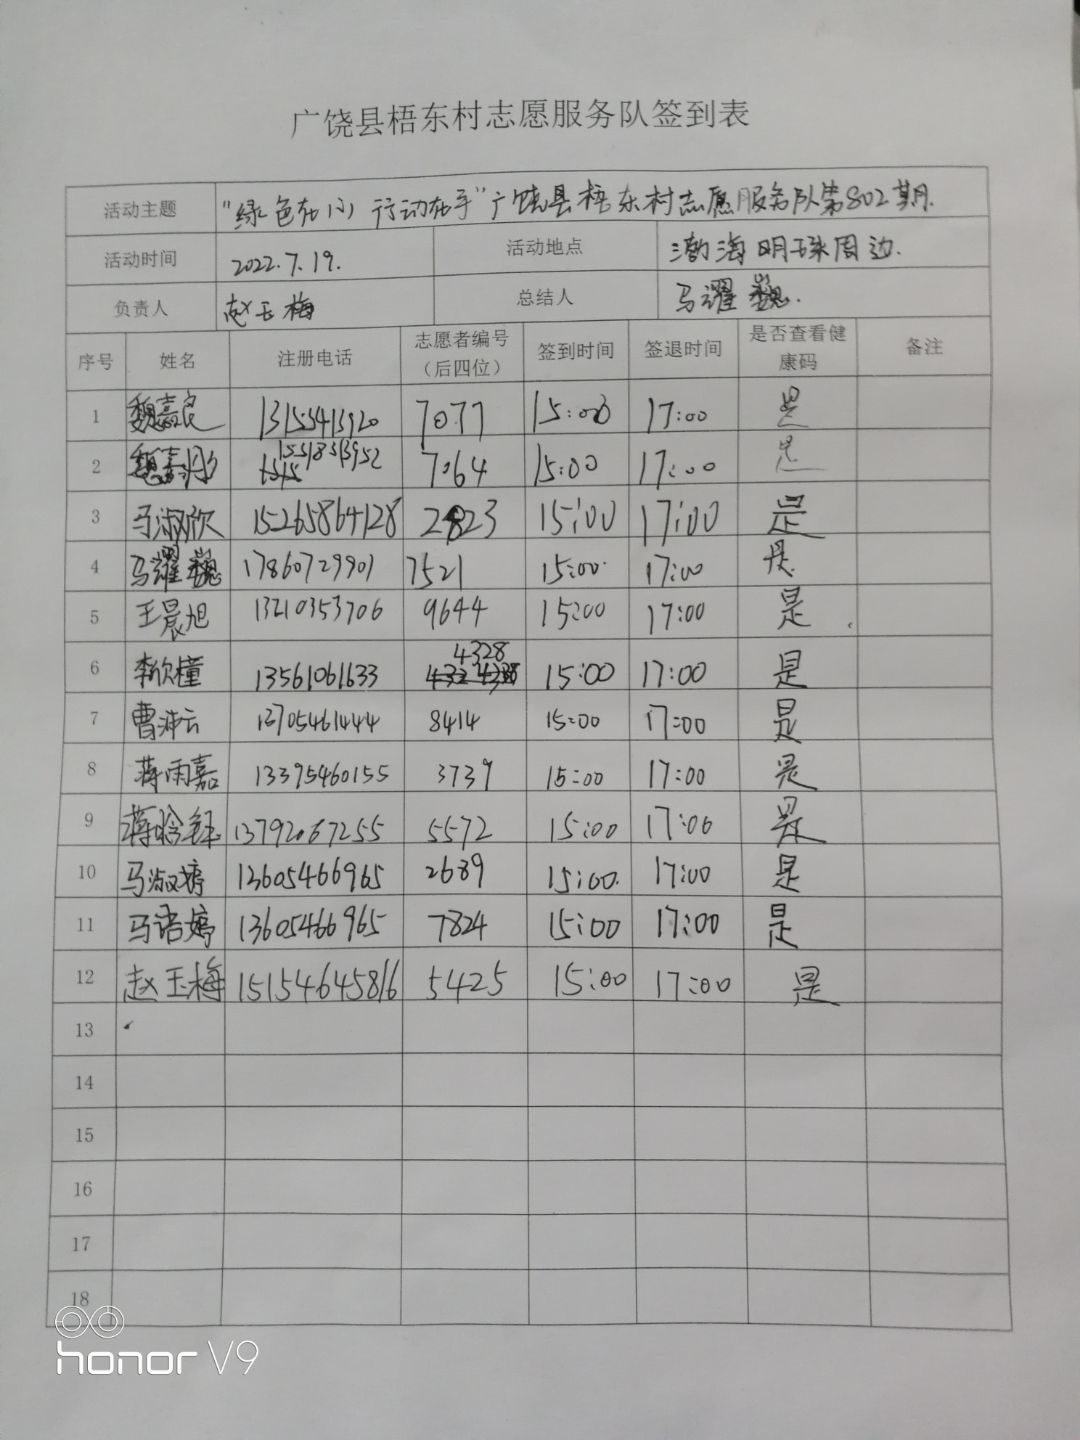 广饶县梧东村志愿服务队签到表
活动主题 "绿色在心 行动在手"广饶县梧东村志愿服务队第802期.
活动时间 2022.7.19. 活动地点 渤海明珠周边.
负责人 赵玉梅 总结人 马耀巍.
序号 姓名 注册电话 志愿者编号（后四位） 签到时间 签退时间 是否查看健康码 备注
1 魏嘉良 13155413920 7077 15:00 17:00 是
2 魏嘉彤 15518513952 7064 15:00 17:00 是
3 马淑欣 15265864128 2823 15:00 17:00 是
4 马耀巍 17860729901 7521 15:00 17:00 是
5 王晨旭 13210353706 9644 15:00 17:00 是
6 李欣橦 13561061633 4328 15:00 17:00 是
7 曹沛云 13705461444 8414 15:00 17:00 是
8 蒋雨嘉 13395460155 3739 15:00 17:00 是
9 蒋晗 13792067255 5572 15:00 17:00 是
10 马淑婷 13605466965 2689 15:00. 17:00 是
11 马语婷 13605466965 7824 15:00 17:00 是
12 赵玉梅 15154645816 5425 15:00 17:00 是
13
14
15
16
17
18
honor V9